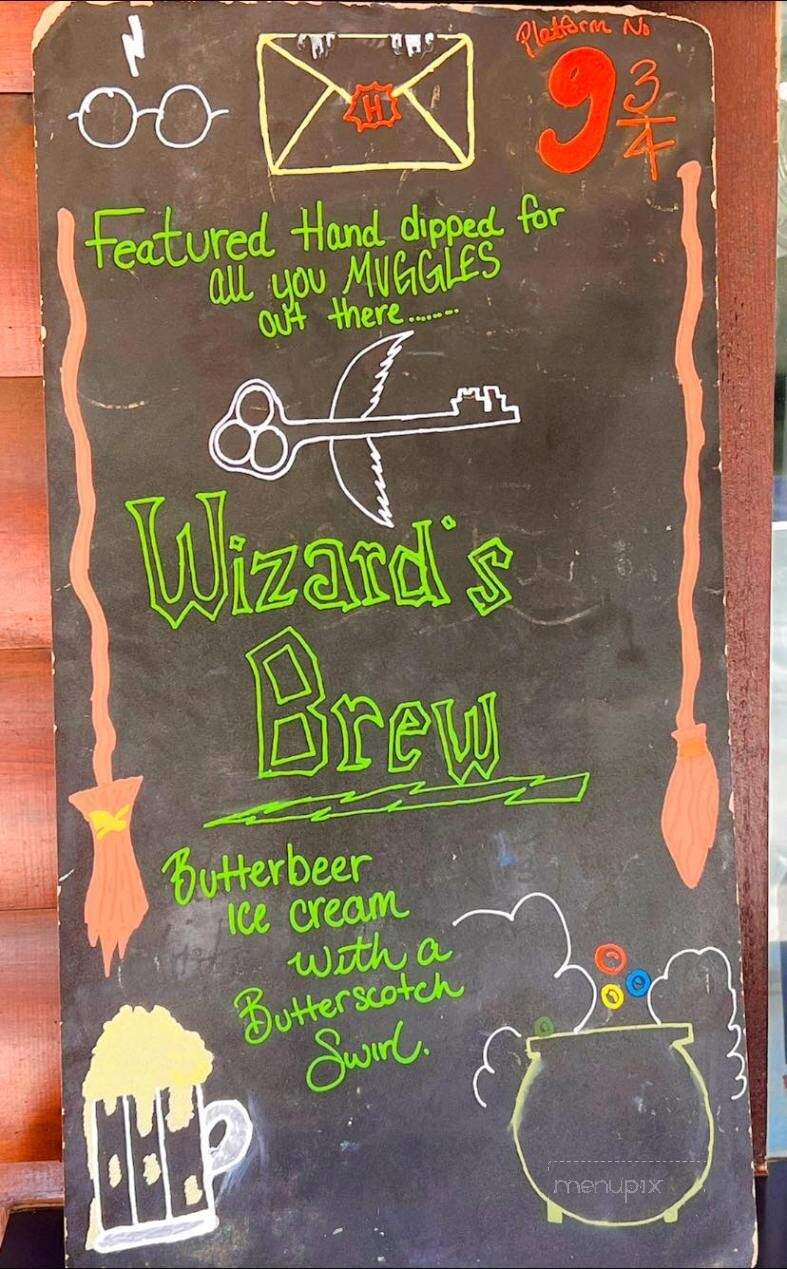 Platform No
9 3/4
H
Featured Hand dipped for
all you MUGGLES
out there.......
Wizard's
Brew
Butterbeer
Ice cream
with a
Butterscotch
Swirl.
menupix